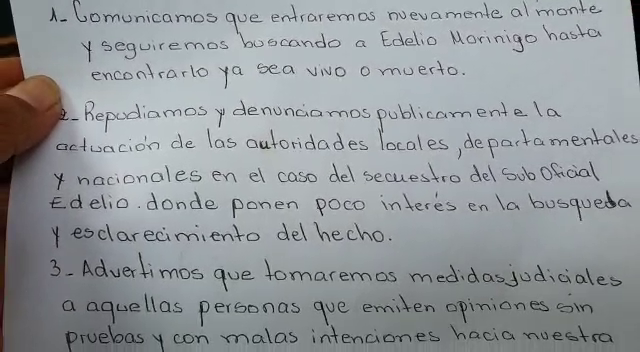 1- Comunicamos que entraremos nuevamente al monte
y seguiremos buscando a Edelio Morinigo hasta
encontrarlo ya sea vivo o muerto.
2- Repudiamos y denunciamos publicamente la
actuación de las autoridades locales, departamentales
y nacionales en el caso del secuestro del Sub Oficial
Edelio. donde ponen poco interés en la busqueda
y esclarecimiento del hecho.
3- Advertimos que tomaremos medidas judiciales
a aquellas personas que emiten opiniones sin
pruebas y con malas intenciones hacia nuestra